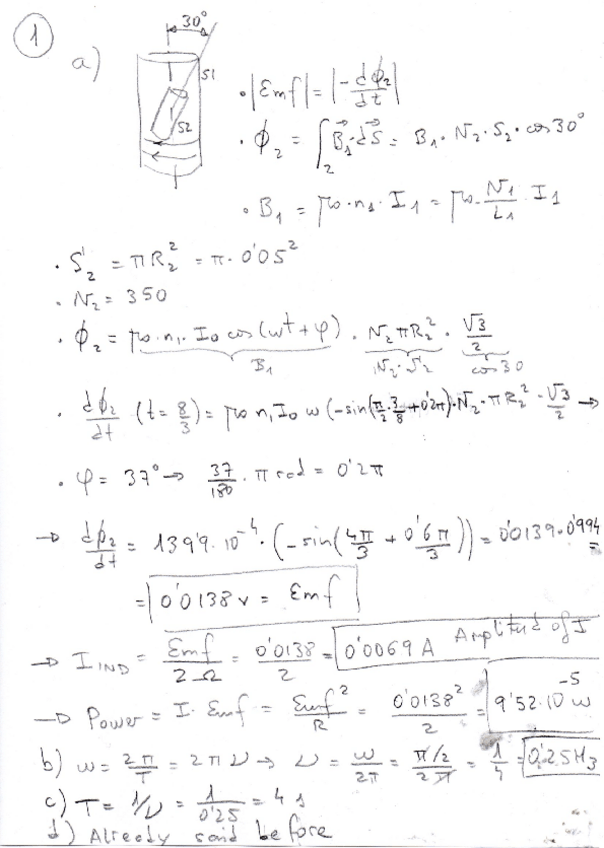 1
30°
a)
S1
S2
· |Emf| = |-dϕ₂/dt|
· ϕ₂ = ∫₂ B⃗₁·dS⃗ = B₁·N₂·S₂·cos30°
· B₁ = μ₀·n₁·I₁ = μ₀·N₁/L₁·I₁
· S₂ = πR₂² = π·0'05²
· N₂ = 350
· ϕ₂ = μ₀·n₁·I₀ cos(ωt+φ)·N₂πR₂²·√3/2
B₁ N₂·S₂ cos30
· dϕ₂/dt (t=8/3) = μ₀n₁I₀ω(-sin(π/2·3/8+0'2π)·N₂·πR₂²·√3/2 →
· φ = 37° → 37/180·π rad = 0'2π
→ dϕ₂/dt = 139'9·10⁻⁴·(-sin(4π/3+0'6π/3)) = 0'0139·0'994 =
= 0'0138 v = Emf
→ I_IND = Emf/2Ω = 0'0138/2 = 0'0069 A Amplitud of I
→ Power = I·Emf = Emf²/R = 0'0138²/2 = 9'52·10⁻⁵ w
b) ω = 2π/T = 2πν → ν = ω/2π = π/2/2π = 1/4 = 0,25Hz
c) T = 1/ν = 1/0'25 = 4 s
d) Already said before